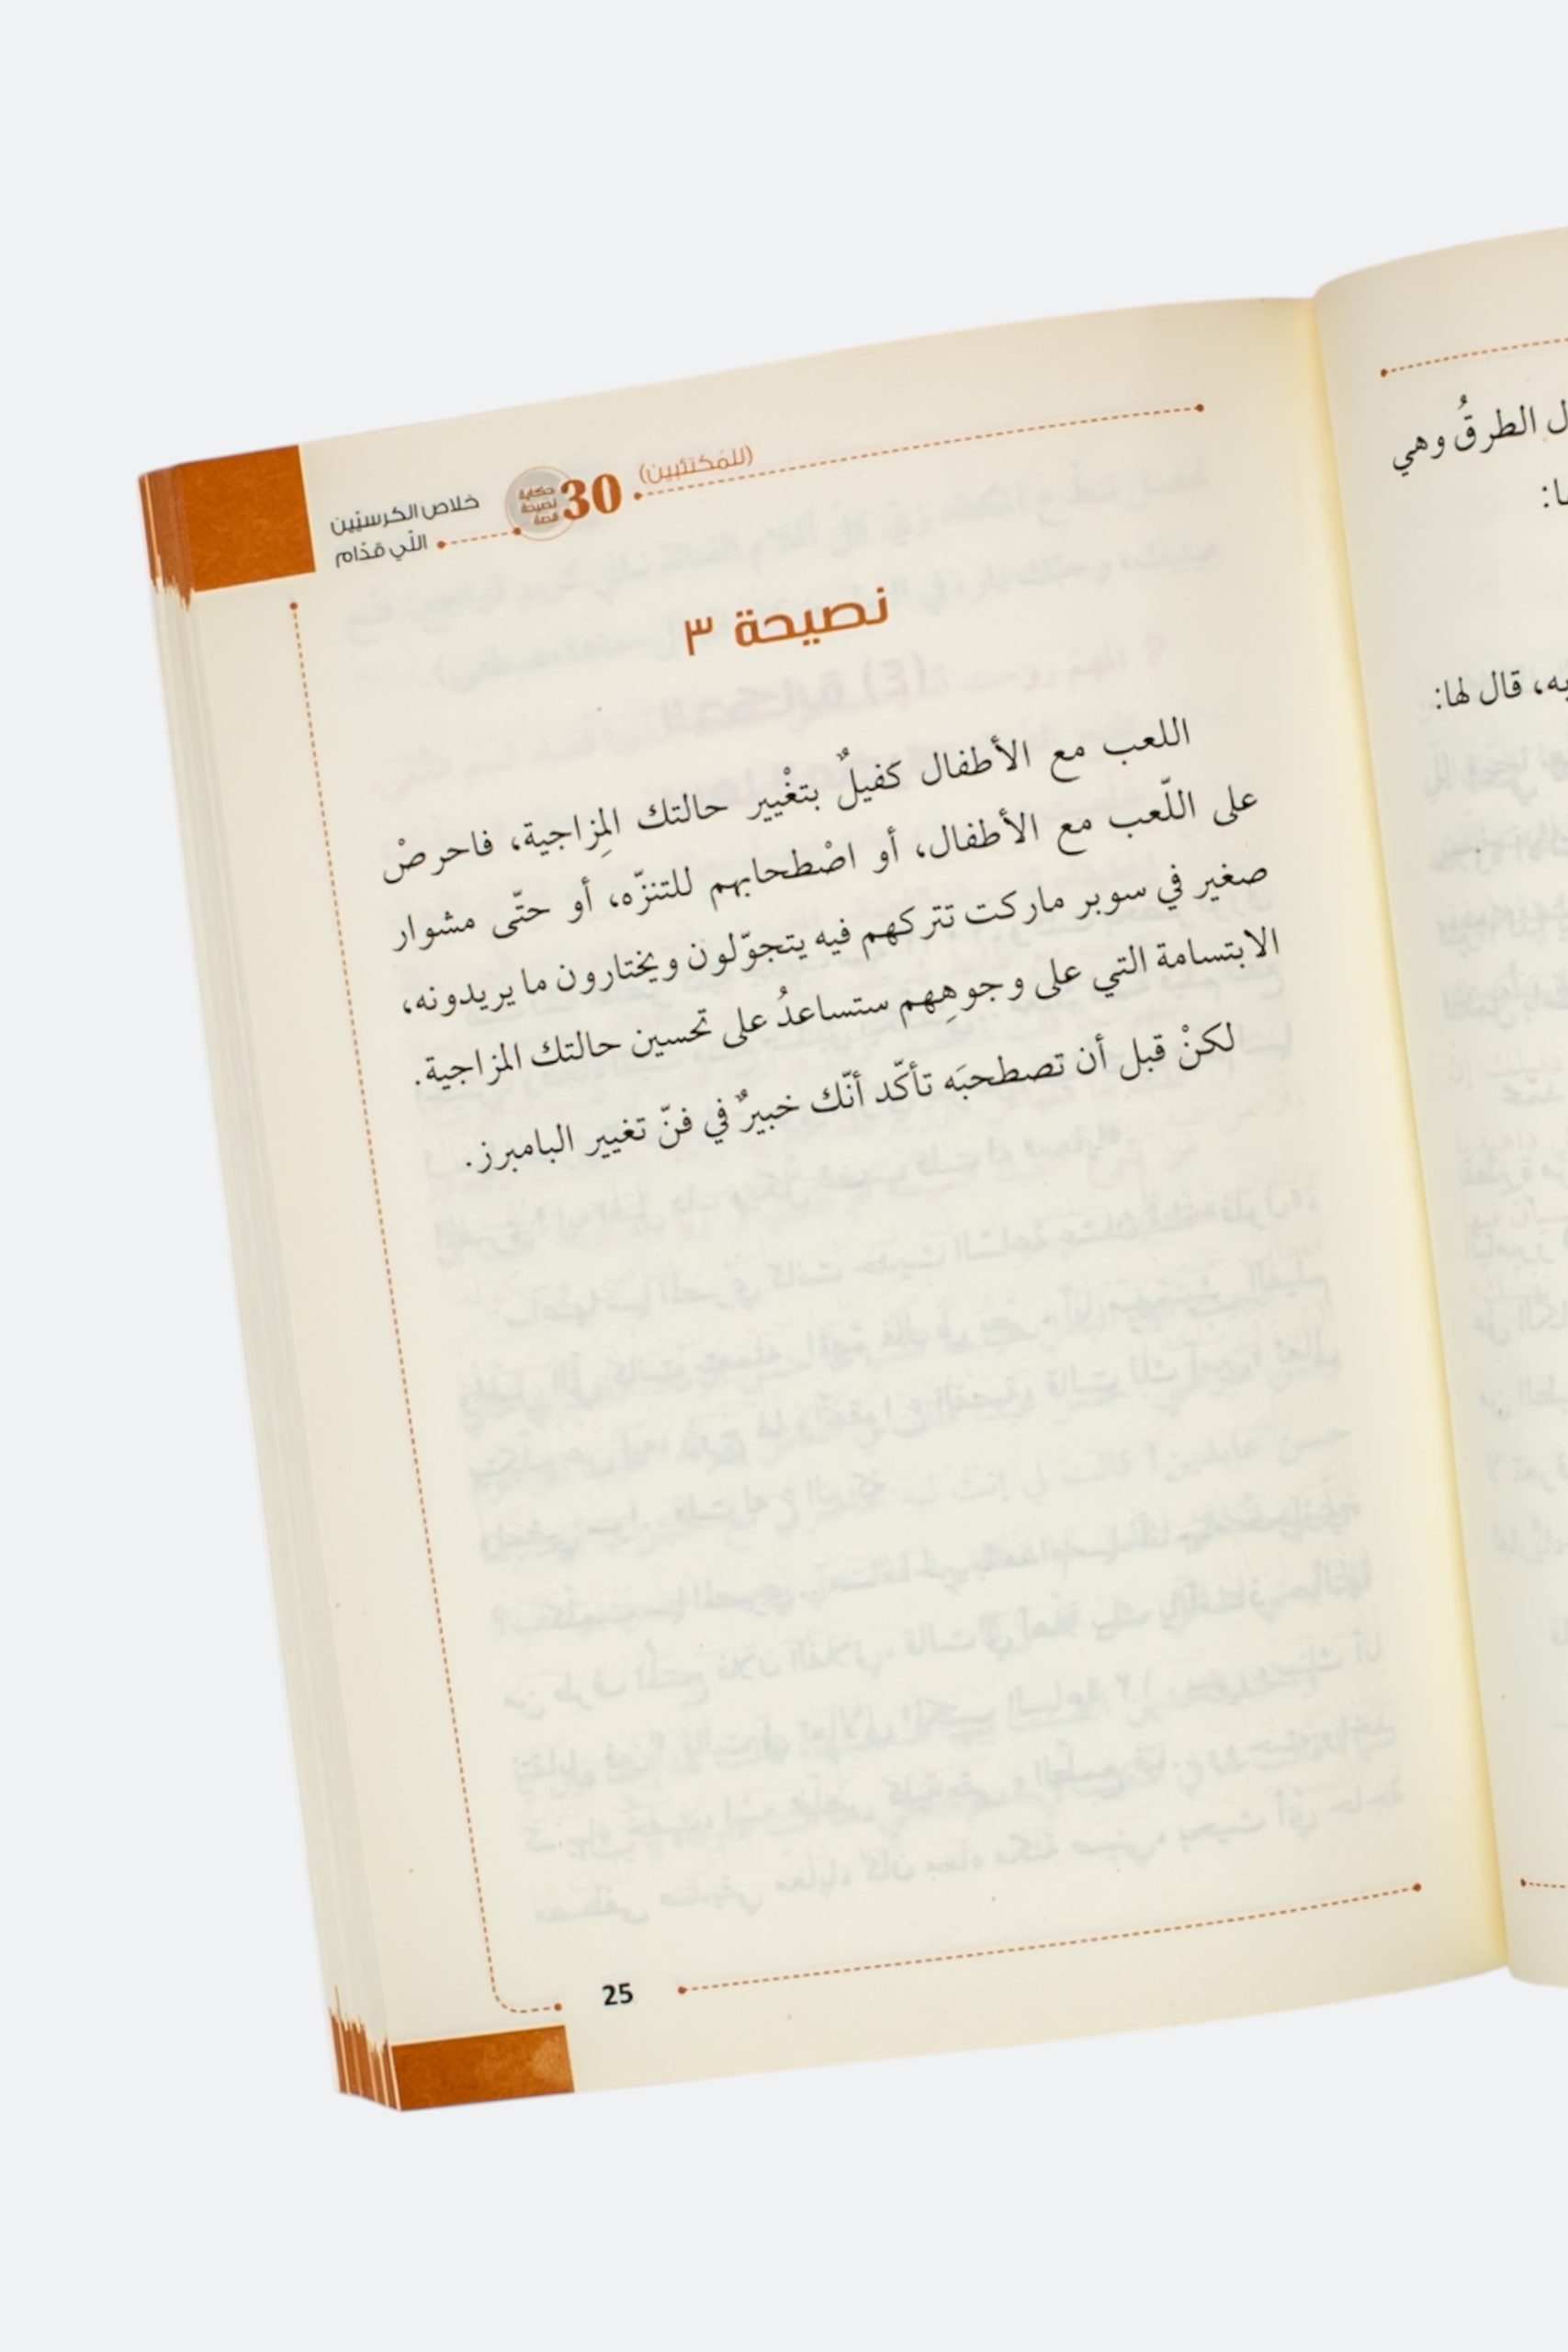 (للمُكتئبين)
30
حكاية
نصيحة
قصة
خلاص الكرسيّين
اللّي قدّام
نصيحة ٣
اللعب مع الأطفال كفيلٌ بتغْيير حالتك المِزاجية، فاحرصْ
على اللّعب مع الأطفال، أو اصْطحابهم للتنزّه، أو حتّى مشوار
صغير في سوبر ماركت تتركهم فيه يتجوّلون ويختارون ما يريدونه،
الابتسامة التي على وجوهِهم ستساعدُ على تحسين حالتك المزاجية.
لكنْ قبل أن تصطحبَه تأكّد أنّك خبيرٌ في فنّ تغيير البامبرز.
25
الطرقُ وهي
قال لها: